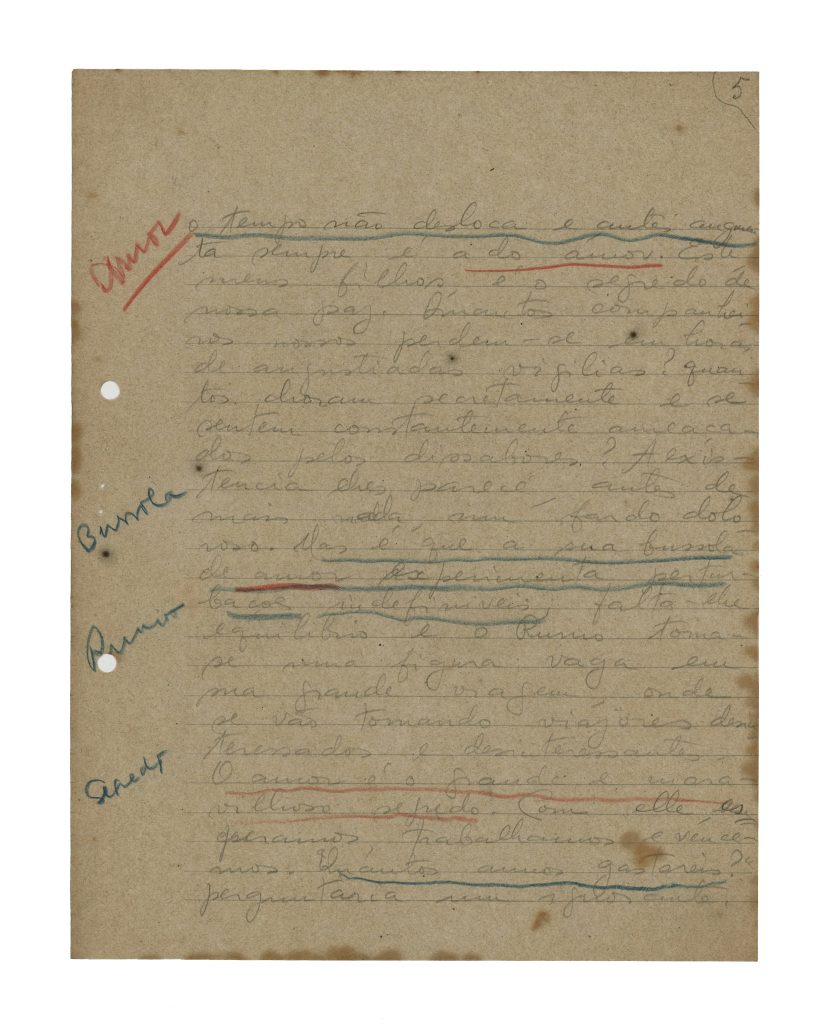 5
Amor
o tempo não desloca e antes augmen
ta sempre é a do amor. Este
meus filhos, é o segredo de
nossa paz. Quantos companhei
ros nossos perdem-se em horas
de angustiadas vigilias? quan
tos choram secretamente e se
sentem constantemente ameaça-
dos pelos dissabores? A exis-
tencia lhes parece antes de
mais nada num fardo dolo
roso. Mas é que a sua bussola
Bussola
de amor experimenta pertur-
bações indefiniveis, falta-lhe
equilibrio e o Rumo torna-
Rumo
se uma figura vaga em
sua grande viagem onde
se vão tornando viajores desin
teressados e desinteressantes.
O amor é o grande e mara-
Segredo
vilhoso segredo. Com elle es
peramos, trabalhamos e vence-
mos. "Quantos annos gastareis?"
perguntaria um ignorante.